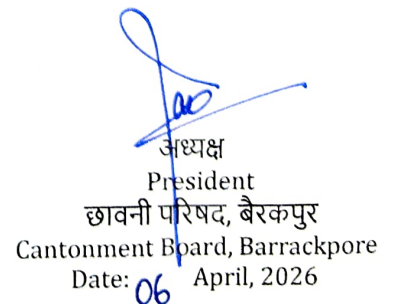 अध्यक्ष
President
छावनी परिषद, बैरकपुर
Cantonment Board, Barrackpore
Date: 06 April, 2026